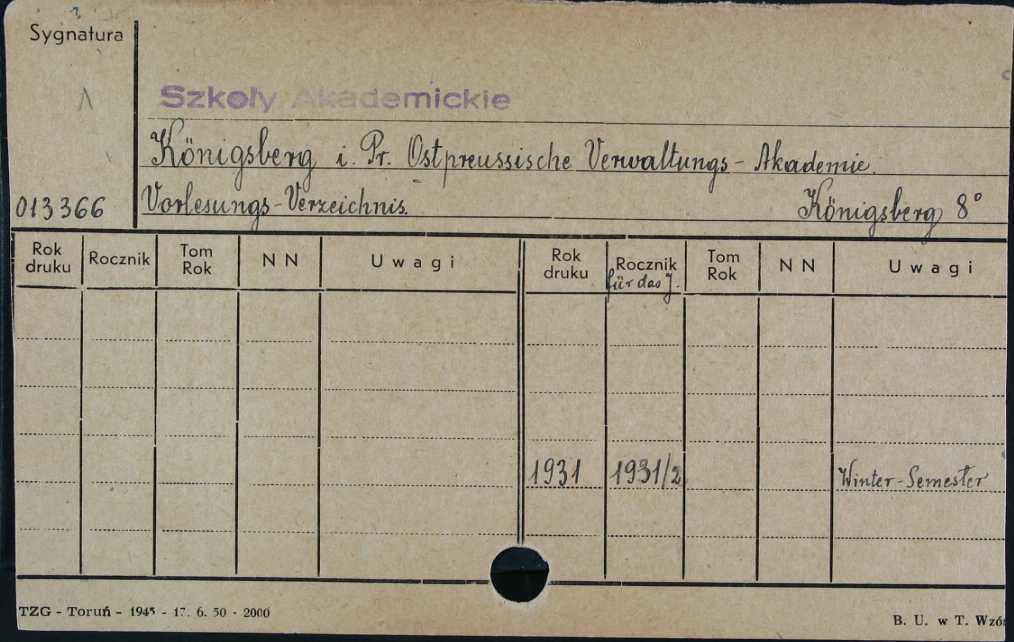 Sygnatura
Szkoły Akademickie
Königsberg i. Pr. Ostpreussische Verwaltungs-Akademie.
013366 Vorlesungs-Verzeichnis. Königsberg 8°
Rok druku Rocznik Tom Rok N N Uwagi Rok druku Rocznik für das J. Tom Rok N N Uwagi
1931 1931/2 Winter-Semester
TZG - Toruń - 1945 - 17. 6. 50 - 2000 B. U. w T.